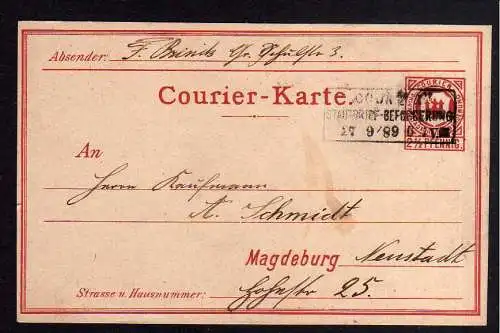 Absender: F. Gr. Schulstr 3.
COURIER
Courier-Karte.
STADTBRIEF-BEFÖRDERUNG
27 9/89
2½ PFENNIG
An
Herrn Kaufmann
A. Schmidt
Magdeburg Neustadt
Strasse u. Hausnummer: Hohestr 25.